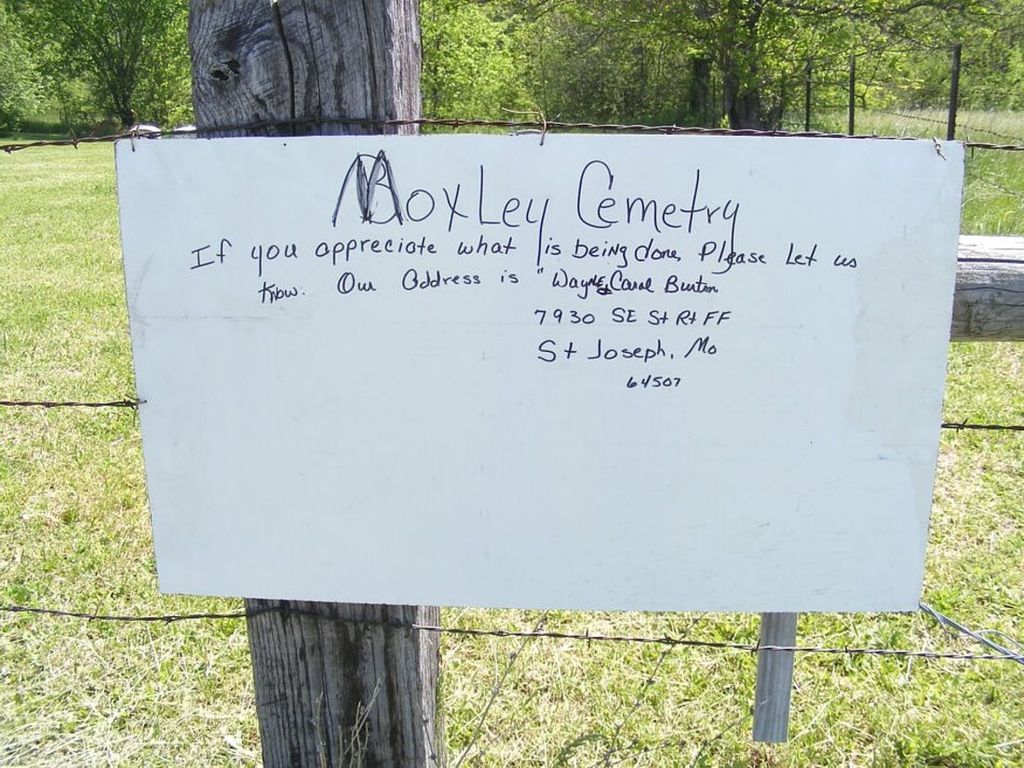 Moxley Cemetry
If you appreciate what is being done, Please Let us
Know. Our Address is "Wayne & Carol Burton
7930 SE St Rt FF
St Joseph, Mo
64507